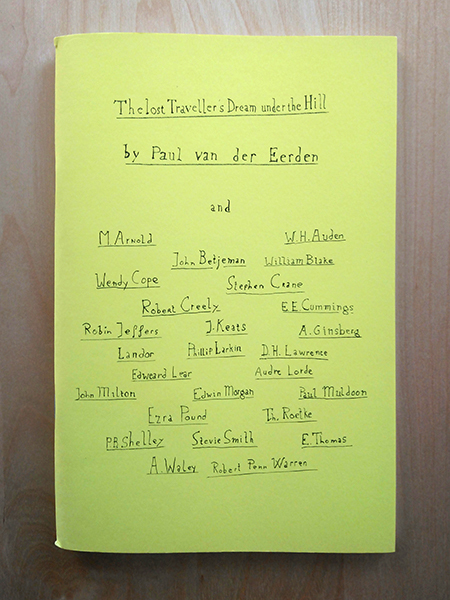 The lost Traveller's Dream under the Hill
by Paul van der Eerden
and
M Arnold W.H. Auden
John Betjeman William Blake
Wendy Cope Stephen Crane
Robert Creely E E Cummings
Robin Jeffers J. Keats A. Ginsberg
Landor Phillip Larkin D.H. Lawrence
Edweard Lear Audre Lorde
John Milton Edwin Morgan Paul Muldoon
Ezra Pound Th. Roetke
P.B. Shelley Stevie Smith E. Thomas
A. Waley Robert Penn Warren